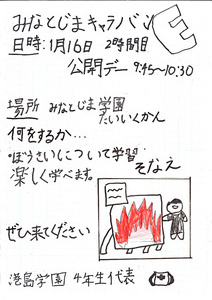 みなとじまキャラバン
日時:1月16日 2時間目
公開デー 9:45~10:30
場所 みなとじま学園
たいいくかん
何をするか…
・ぼうさいについて学習
楽しく学べます。
そなえ
ぜひ来てください
港島学園 4年生代表